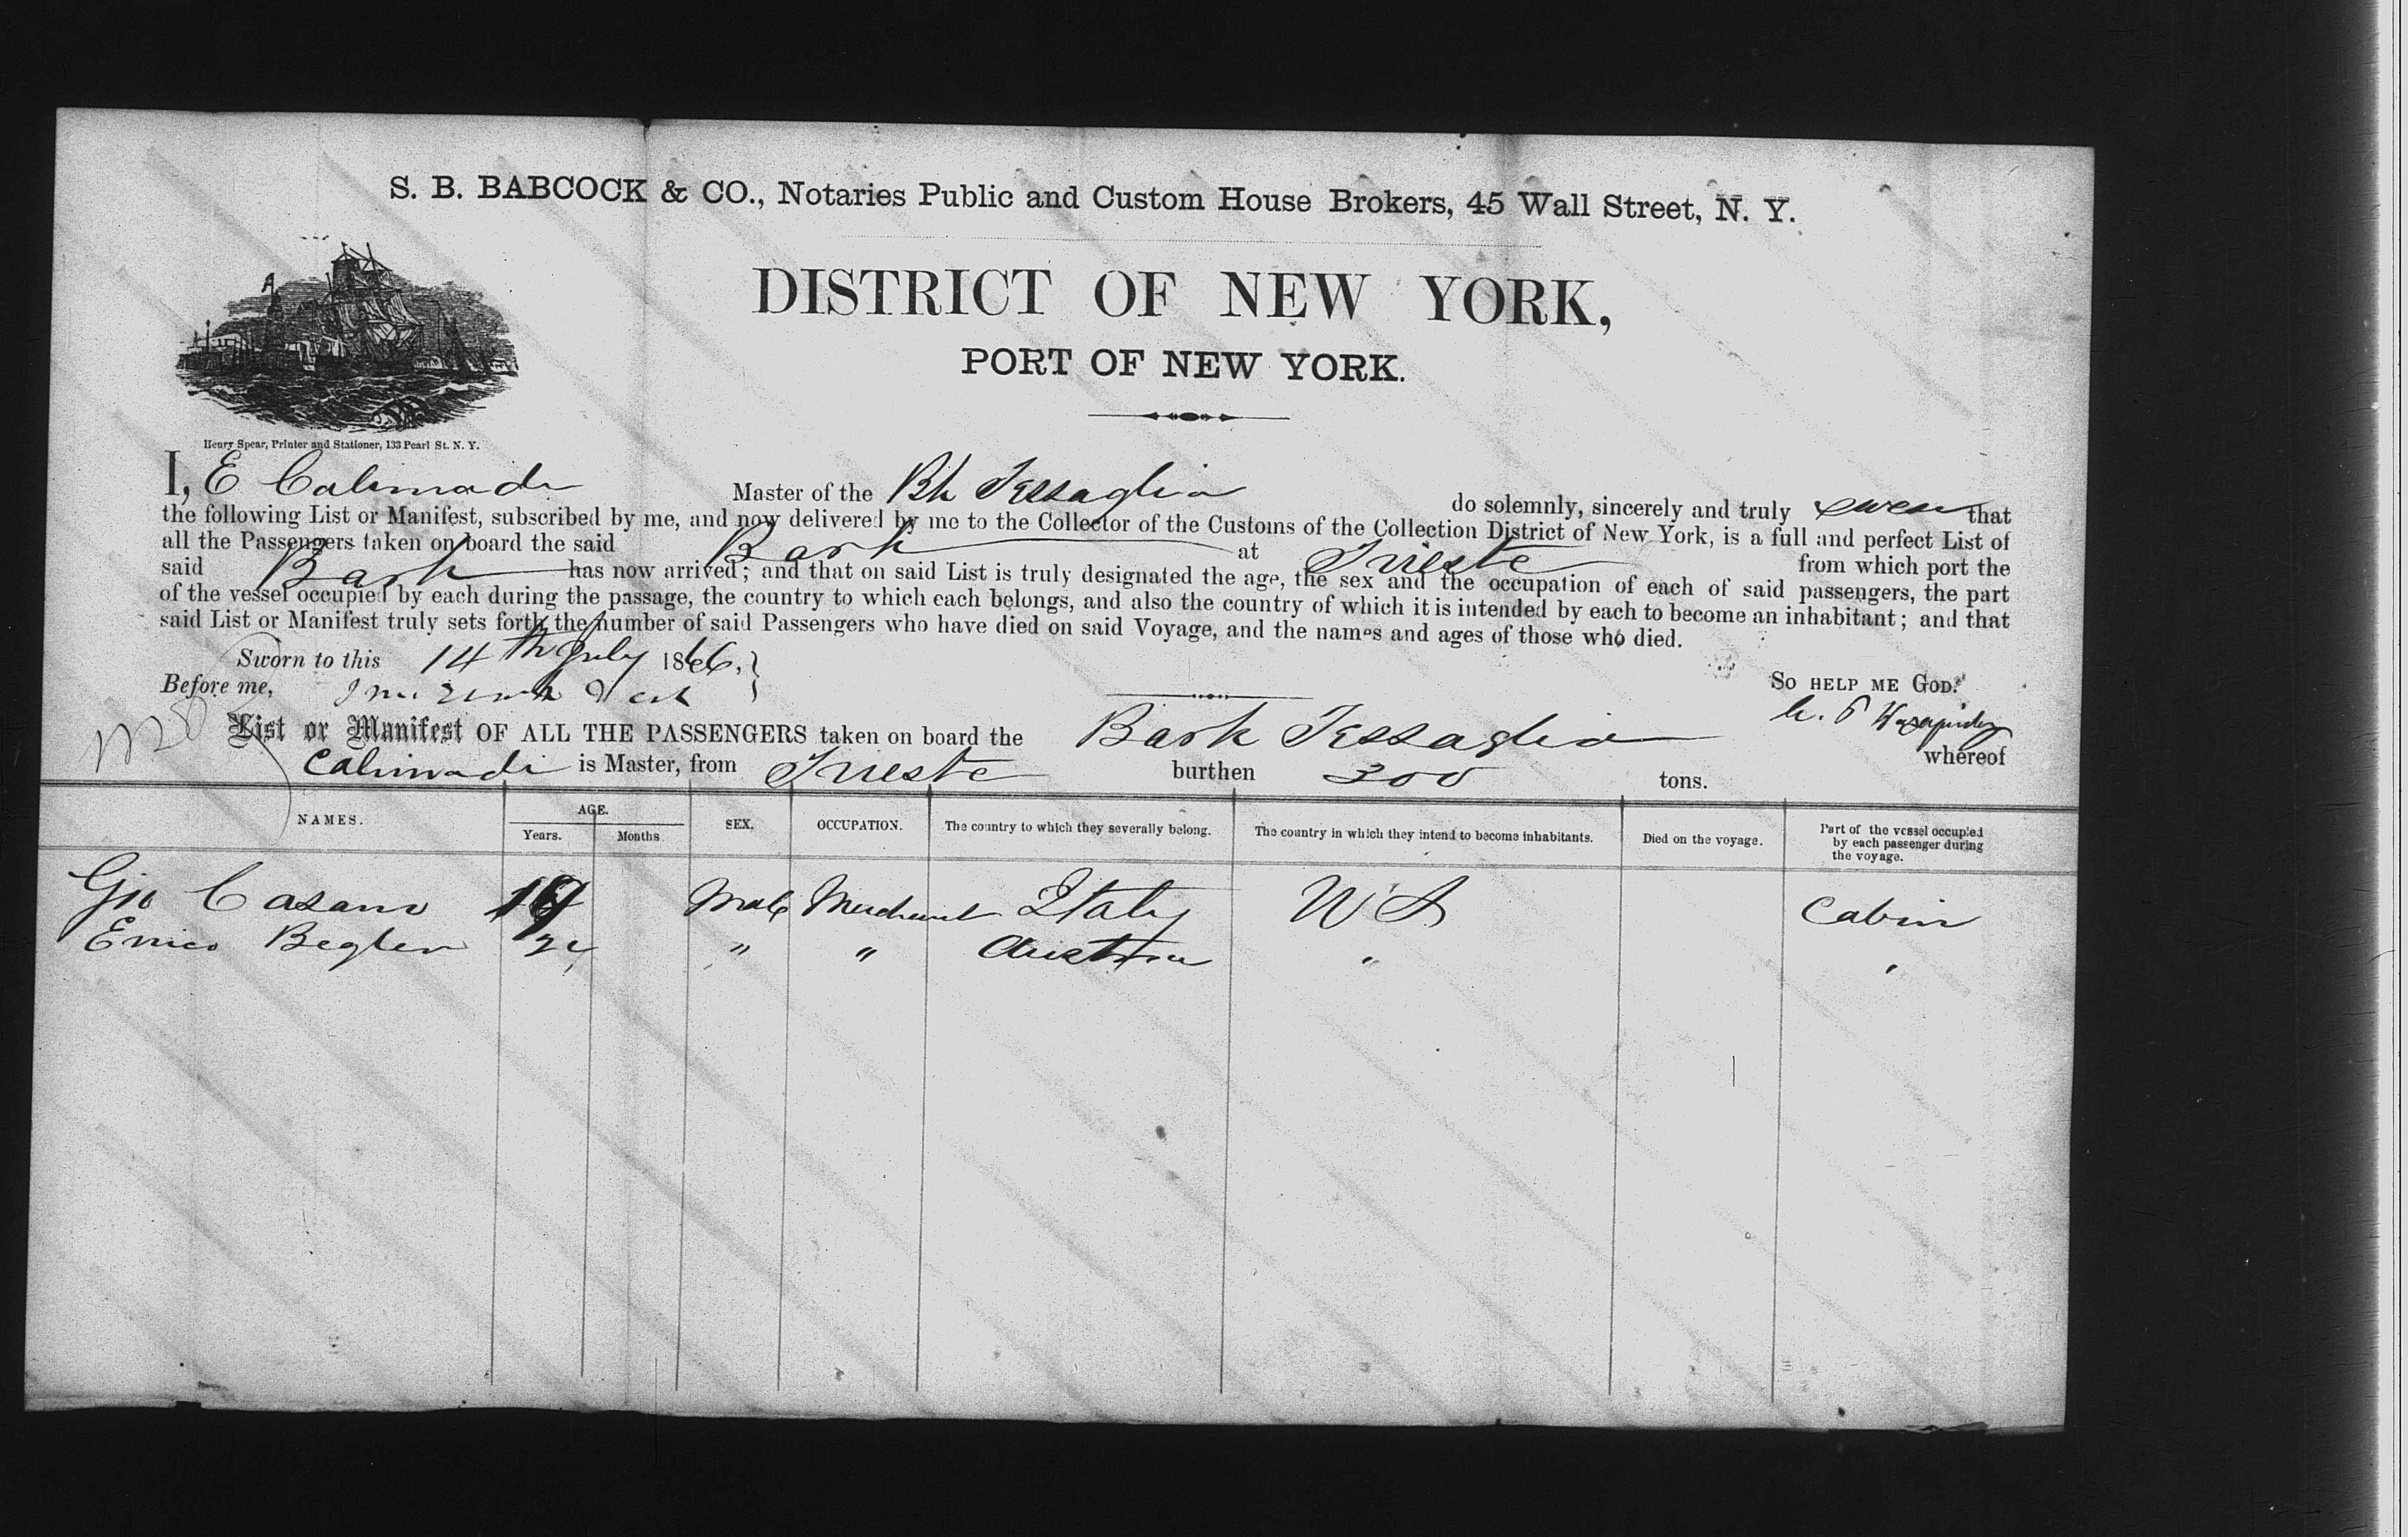 S. B. BABCOCK & CO., Notaries Public and Custom House Brokers, 45 Wall Street, N. Y.
DISTRICT OF NEW YORK,
PORT OF NEW YORK.
Henry Spear, Printer and Stationer, 133 Pearl St. N. Y.
I, E Calimadi Master of the Bk Tessaglia do solemnly, sincerely and truly swear that
the following List or Manifest, subscribed by me, and now delivered by me to the Collector of the Customs of the Collection District of New York, is a full and perfect List of
all the Passengers taken on board the said Bark at Trieste from which port the
said Bark has now arrived; and that on said List is truly designated the age, the sex and the occupation of each of said passengers, the part
of the vessel occupied by each during the passage, the country to which each belongs, and also the country of which it is intended by each to become an inhabitant; and that
said List or Manifest truly sets forth the number of said Passengers who have died on said Voyage, and the names and ages of those who died.
Sworn to this 14th July 1866,
So HELP ME GOD.
Before me,
List or Manifest OF ALL THE PASSENGERS taken on board the Bark Tessaglia whereof
Calimadi is Master, from Trieste burthen 300 tons.
NAMES. AGE. Years. Months SEX. OCCUPATION. The country to which they severally belong. The country in which they intend to become inhabitants. Died on the voyage. Part of the vessel occupied by each passenger during the voyage.
Gio Casano Male Merchant Italy Cabin
Enrico Begler 24 " " Austria " "